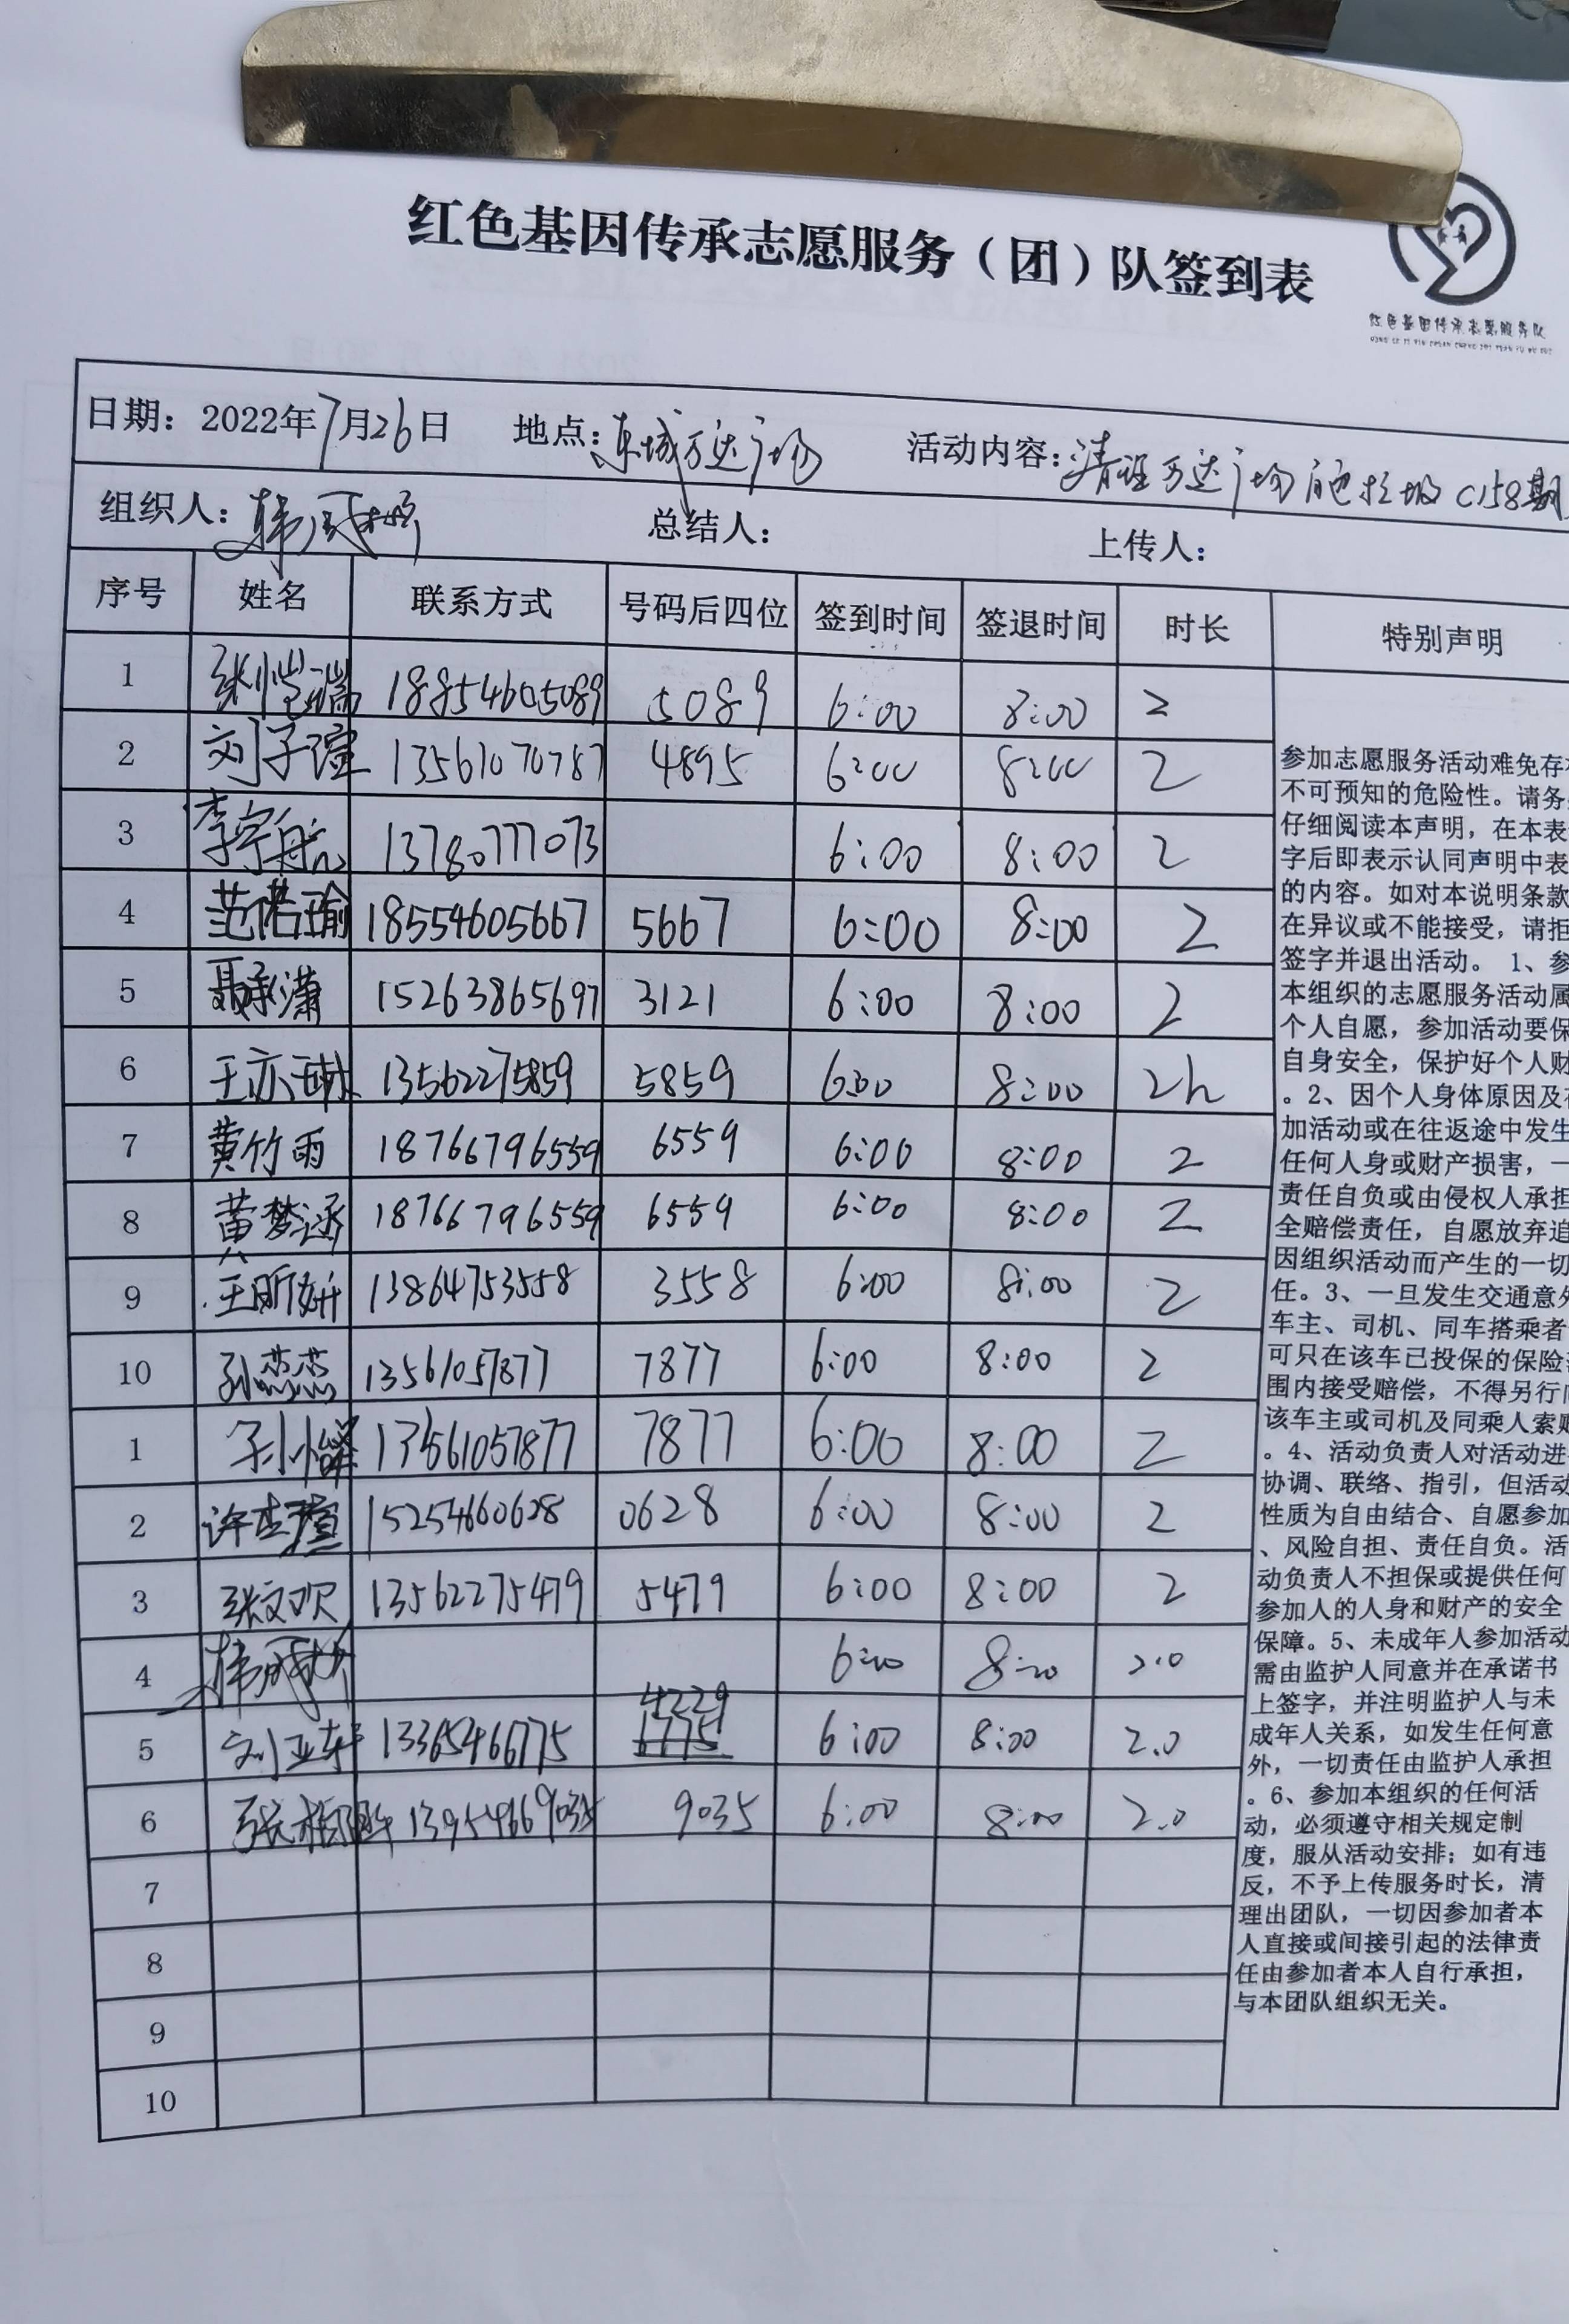 红色基因传承志愿服务（团）队签到表
红色基因传承志愿服务队
日期：2022年7月26日 地点：东城万达广场 活动内容：清理万达广场 C158期
组织人： 总结人： 上传人：
序号 姓名 联系方式 号码后四位 签到时间 签退时间 时长 特别声明
1 张恺瑞 18854605089 5089 6:00 8:00 2
2 刘子瑄 13561070787 4895 6:00 8:00 2
3 李宇航 13780777073 6:00 8:00 2
4 范偌瑜 18554605667 5667 6:00 8:00 2
5 聂承潇 15263865697 3121 6:00 8:00 2
6 王亦琳 13562275859 5859 6:00 8:00 2h
7 黄竹雨 18766796559 6559 6:00 8:00 2
8 黄梦涵 18766796559 6559 6:00 8:00 2
9 王昕妍 13864753558 3558 6:00 8:00 2
10 孙 13561057877 7877 6:00 8:00 2
1 13561057877 7877 6:00 8:00 2
2 许 15254660628 0628 6:00 8:00 2
3 张文欢 13562275479 5479 6:00 8:00 2
4 6:00 8:00 2.0
5 刘亚轩 13365466775 4229 6775 6:00 8:00 2.0
6 张 13954669035 9035 6:00 8:00 2.0
7
8
9
10
参加志愿服务活动难免存
不可预知的危险性。请务
仔细阅读本声明，在本表
字后即表示认同声明中表
的内容。如对本说明条款
在异议或不能接受，请拒
签字并退出活动。 1、参
本组织的志愿服务活动属
个人自愿，参加活动要保
自身安全，保护好个人财
。2、因个人身体原因及
加活动或在往返途中发生
任何人身或财产损害，一
责任自负或由侵权人承担
全赔偿责任，自愿放弃追
因组织活动而产生的一切
任。3、一旦发生交通意外
车主、司机、同车搭乘者
可只在该车已投保的保险
围内接受赔偿，不得另行
该车主或司机及同乘人索赔
。4、活动负责人对活动进
协调、联络、指引，但活动
性质为自由结合、自愿参加
、风险自担、责任自负。活
动负责人不担保或提供任何
参加人的人身和财产的安全
保障。5、未成年人参加活动
需由监护人同意并在承诺书
上签字，并注明监护人与未
成年人关系，如发生任何意
外，一切责任由监护人承担
。6、参加本组织的任何活
动，必须遵守相关规定制
度，服从活动安排；如有违
反，不予上传服务时长，清
理出团队，一切因参加者本
人直接或间接引起的法律责
任由参加者本人自行承担，
与本团队组织无关。